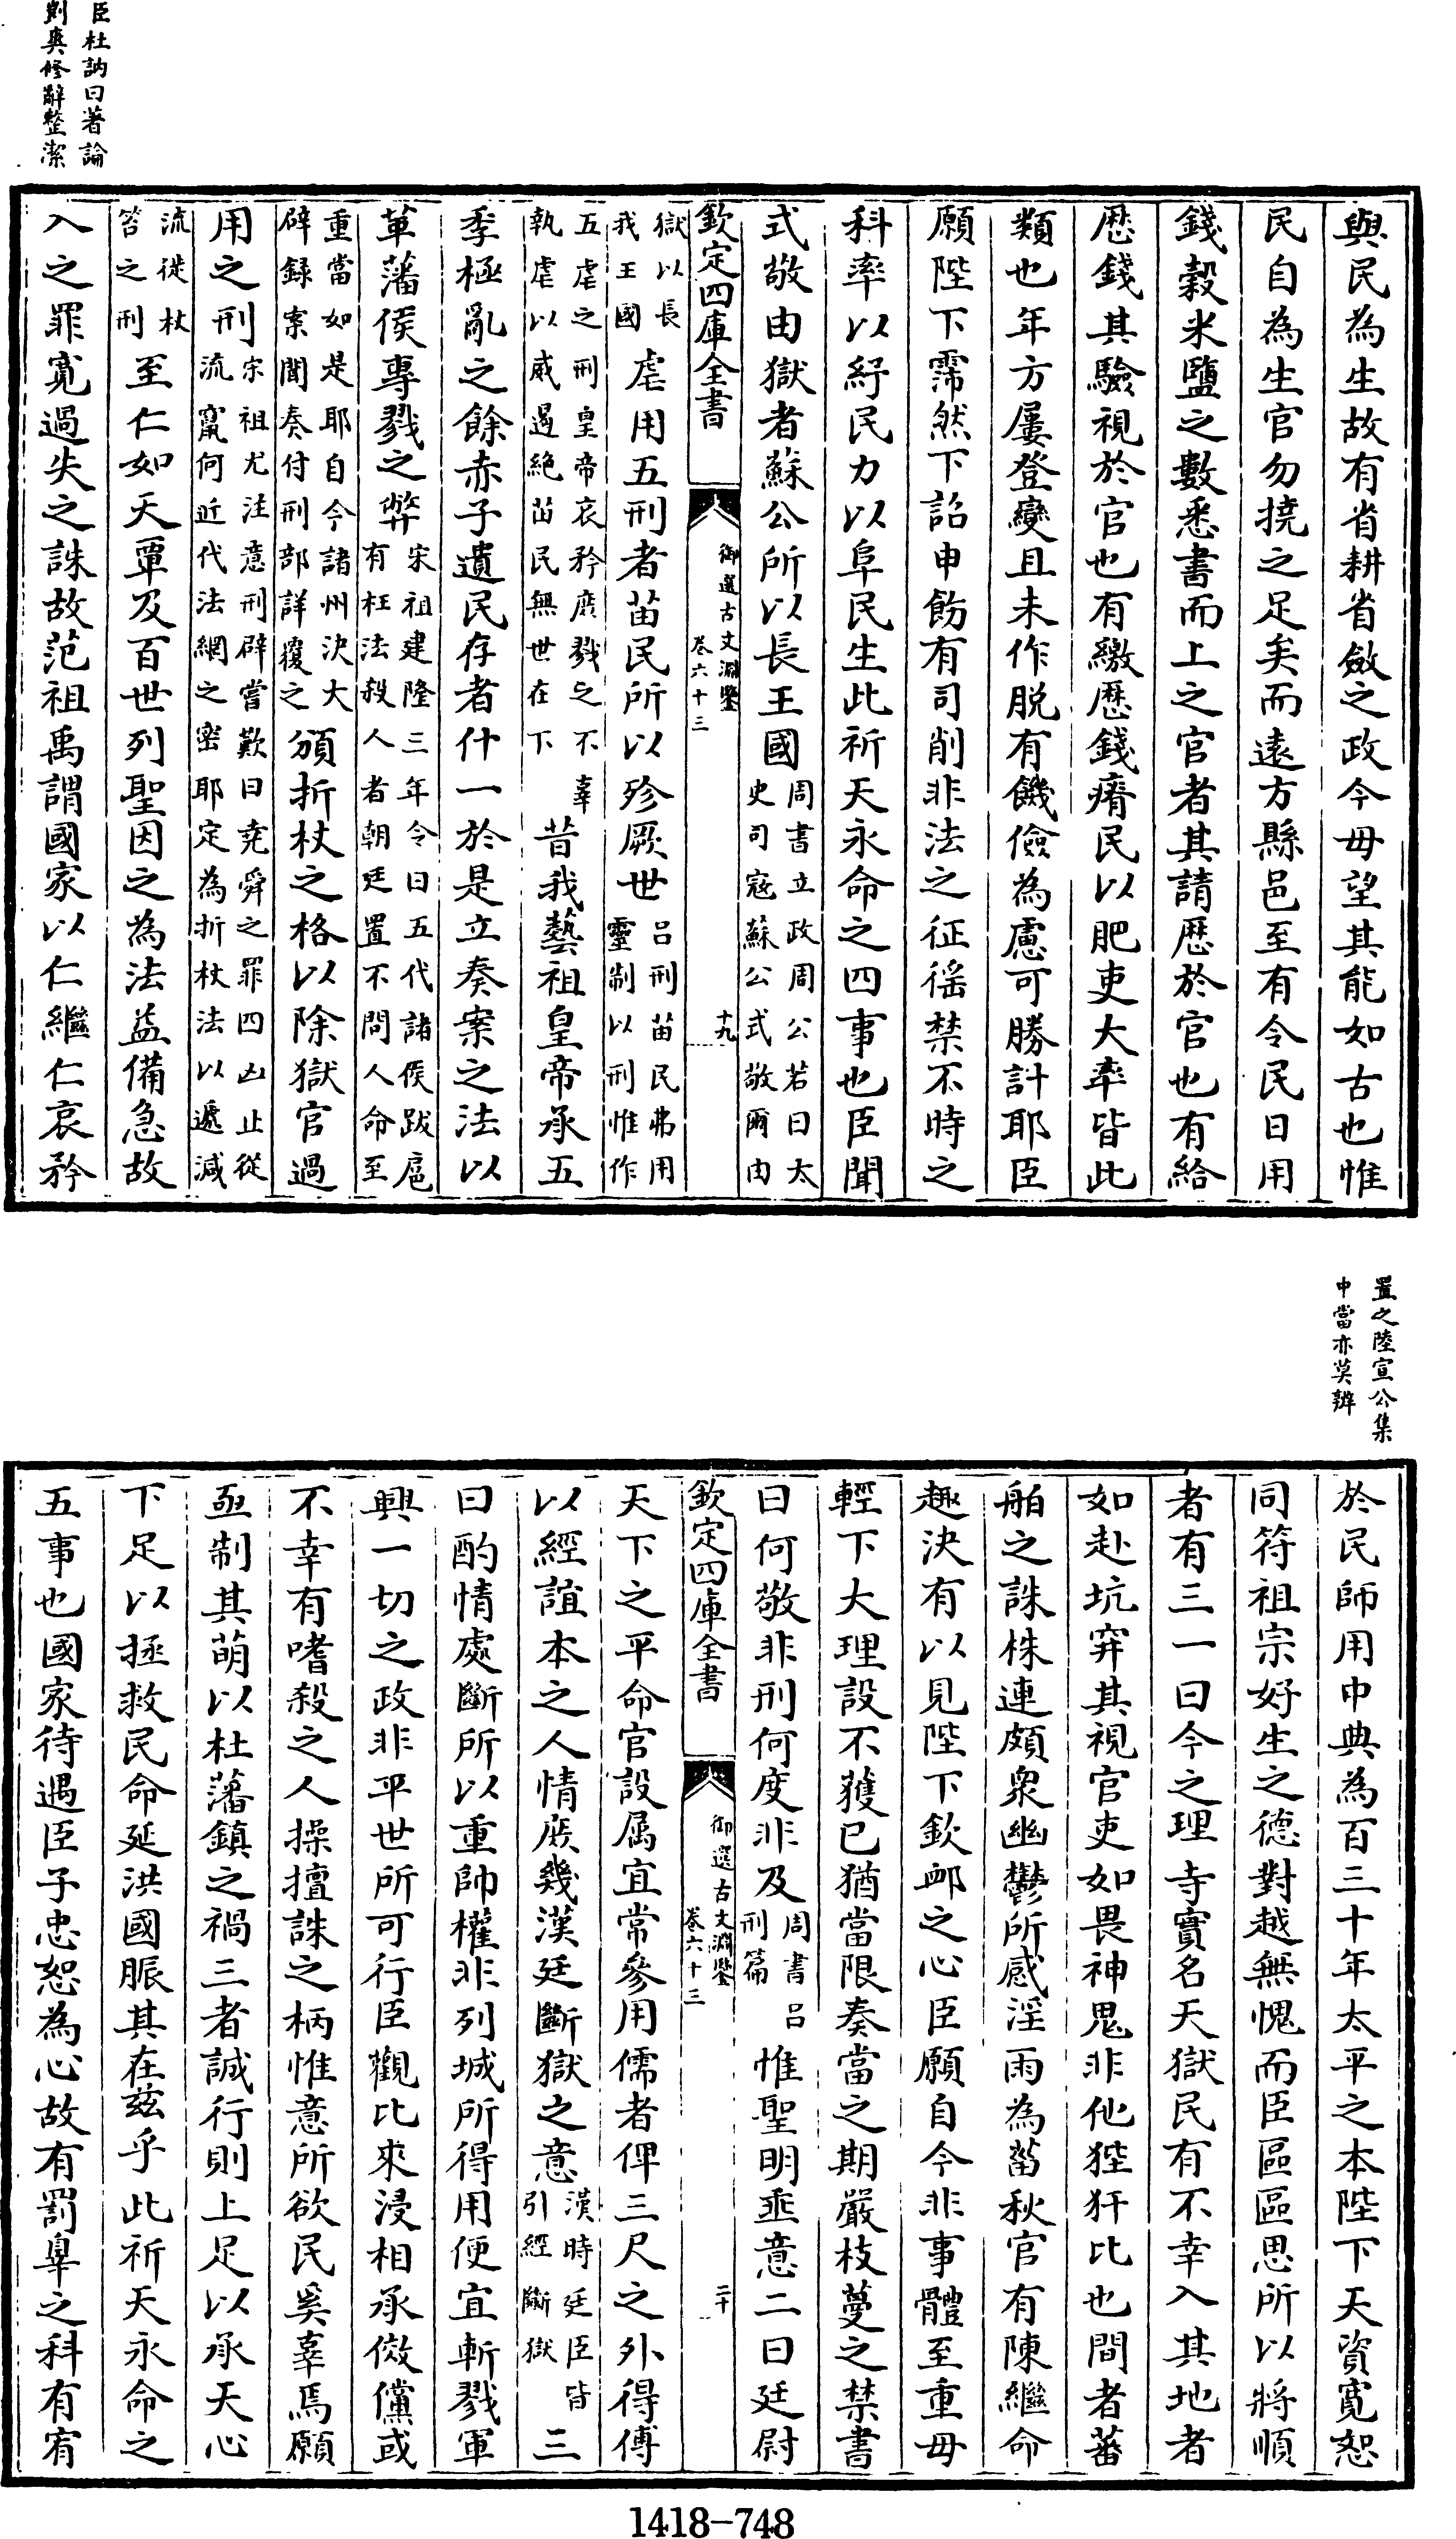 與民為生故有省耕省斂之政今毋望其能如古也惟
民自為生官勿撓之足矣而遠方縣邑至有令民日用
錢穀米鹽之數悉書而上之官者其請厯於官也有給
厯錢其驗視於官也有繳厯錢瘠民以肥吏大率皆此
類也年方屢登變且未作脱有饑儉為慮可勝計耶臣
願陛下霈然下詔申飭有司削非法之征徭禁不時之
科率以紓民力以阜民生此祈天永命之四事也臣聞
式敬由獄者蘇公所以長王國周書立政周公若曰太
史司寇蘇公式敬爾由
欽定四庫全書
御選古文淵鑒
卷六十三
十九
獄以長
我王國
虐用五刑者苗民所以殄厥世呂刑苗民弗用
靈制以刑惟作
五虐之刑皇帝哀矜庶戮之不辜
執虐以威遏絶苗民無世在下
昔我藝祖皇帝承五
季極亂之餘赤子遺民存者什一於是立奏案之法以
革藩侯專戮之弊宋祖建隆三年令曰五代諸侯跋扈
有枉法殺人者朝廷置不問人命至
重當如是耶自今諸州決大
辟録案聞奏付刑部詳覆之
頒折杖之格以除獄官過
用之刑宋祖尤注意刑辟嘗歎曰堯舜之罪四凶止從
流竄何近代法網之密耶定為折杖法以遞減
流徒杖
笞之刑
至仁如天覃及百世列聖因之為法益備急故
入之罪寛過失之誅故范祖禹謂國家以仁繼仁哀矜
臣杜訥曰著論
剴爽修辭整潔
於民師用中典為百三十年太平之本陛下天資寛恕
同符祖宗好生之德對越無愧而臣區區思所以將順
者有三一曰今之理寺實名天獄民有不幸入其地者
如赴坑穽其視官吏如畏神鬼非他狴犴比也間者蕃
舶之誅株連頗衆幽鬱所感淫雨為菑秋官有陳繼命
趣決有以見陛下欽䘏之心臣願自今非事體至重毋
輕下大理設不獲已猶當限奏當之期嚴枝蔓之禁書
曰何敬非刑何度非及周書呂
刑篇
惟聖明垂意二曰廷尉
欽定四庫全書
御選古文淵鑒
卷六十三
二十
天下之平命官設属宜常參用儒者俾三尺之外得傅
以經誼本之人情庶幾漢廷斷獄之意漢時廷臣皆
引經斷獄
三
曰酌情處斷所以重帥權非列城所得用便宜斬戮軍
興一切之政非平世所可行臣觀比來浸相承傚儻或
不幸有嗜殺之人操擅誅之柄惟意所欲民奚辜焉願
亟制其萌以杜藩鎮之禍三者誠行則上足以承天心
下足以拯救民命延洪國脈其在兹乎此祈天永命之
五事也國家待遇臣子忠恕為心故有罰辠之科有宥
置之陸宣公集
中當亦莫辨
1418-748